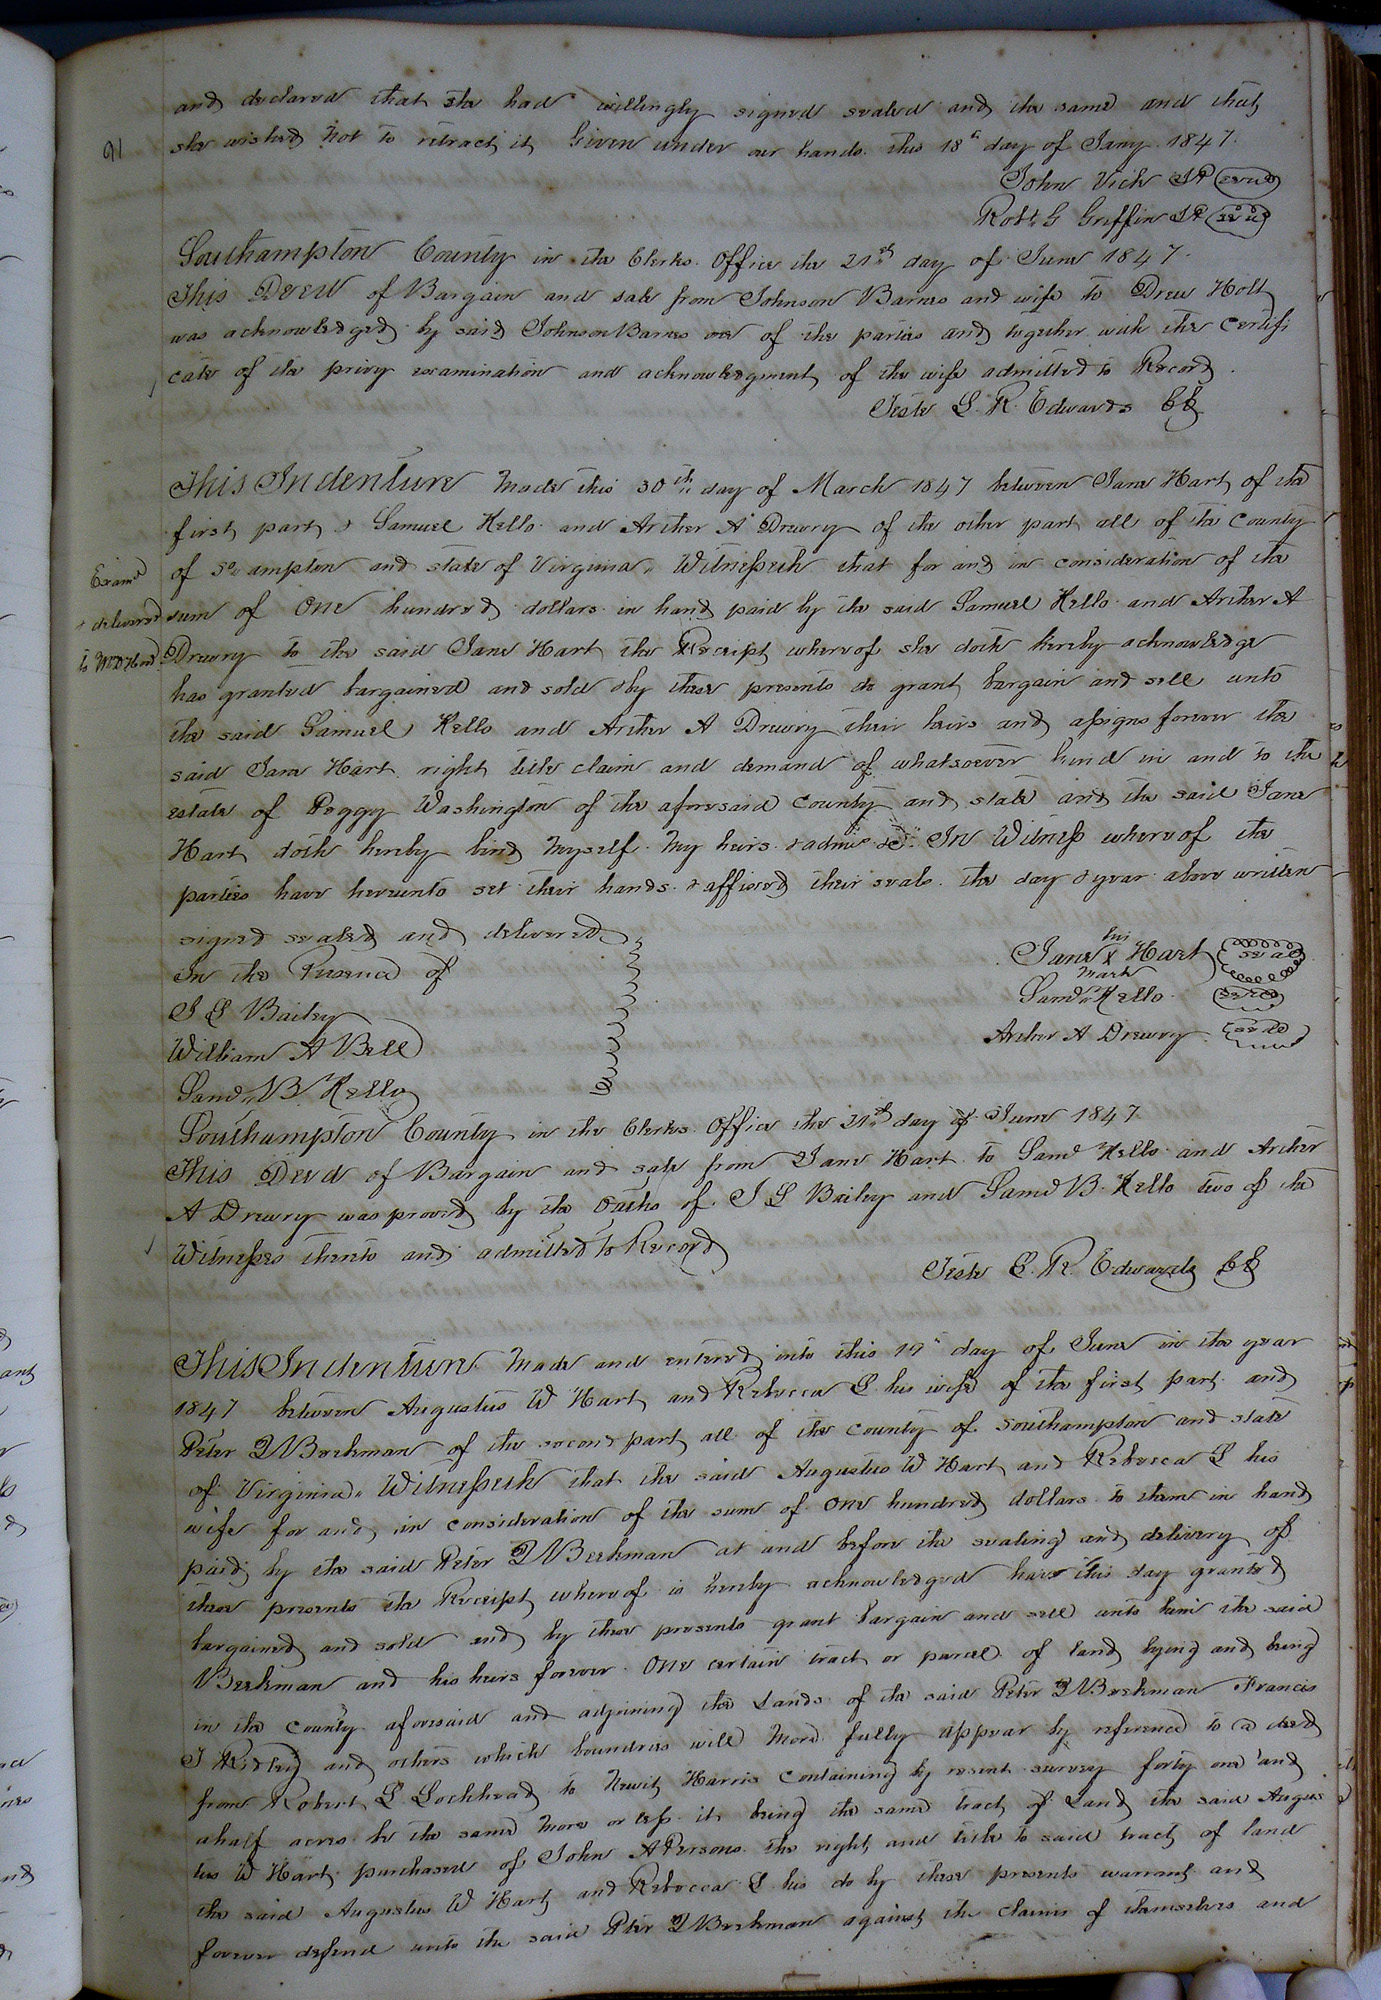 and declared that she had willingly signed sealed and the same and that
91
she wished not to retract it Given under our hands this 18th day of Jany 1847.
John Vick JP (seal)
Robt. G Griffin JP (seal)
Southampton County in the Clerks Office the 21st day of June 1847.
This Deed of Bargain and sale from Johnson Barnes and wife to Drew Holt
was acknowledged by said Johnson Barnes one of the parties and together with the certifi
cate of the privy examination and acknowledgment of the wife admitted to Record.
Teste L. R. Edwards CC
This Indenture Made this 30th day of March 1847 between Jane Hart of the
first part & Samuel Kello and Archer A Drewry of the other part all of the County
Examd
of So. ampton and state of Virginia, Witnesseth that for and in consideration of the
& delivered
sum of One hundred dollars in hand paid by the said Samuel Kello and Archer A
to
Drewry to the said Jane Hart the Receipt whereof she doth hereby acknowledge
has granted bargained and sold & by these presents do grant bargain and sell unto
the said Samuel Kello and Archer A Drewry their heirs and assigns forever the
said Jane Hart right title claim and demand of whatsoever kind in and to the
estate of Peggy Washington of the aforesaid County and state and the said Jane
Hart doth hereby bind Myself My heirs & admrs &c. In Witness whereof the
parties have hereunto set their hands & affixed their seals the day & year above written
signed sealed and delivered
In the Presence of
J L Bailey
William A Bell
Saml. B Kello
her
Jane X Hart (seal)
mark
Saml. Kello (seal)
Archer A Drewry (seal)
Southampton County in the Clerks Office the 21st day of June 1847
This Deed of Bargain and sale from Jane Hart to Saml Kello and Archer
A Drewry was proved by the Oaths of J L Bailey and Saml B. Kello two of the
Witnesses thereto and admitted to Record
Teste L. R. Edwards CC
This Indenture Made and entered into this 19th day of June in the year
1847 between Augustus W Hart and Rebecca L his wife of the first part and
Peter Beekman of the second part all of the County of Southampton and state
of Virginia, Witnesseth that the said Augustus W Hart and Rebecca L his
wife for and in consideration of the sum of One hundred dollars to them in hand
paid by the said Peter Beekman at and before the sealing and delivery of
these presents the Receipt whereof is hereby acknowledged have this day granted
bargained and sold and by these presents grant bargain and sell unto him the said
Beekman and his heirs forever One certain tract or parcel of land lying and being
in the County aforesaid and adjoining the Lands of the said Peter Beekman Francis
T Ridley and others which boundres will More fully appear by reference to a deed
from Robert L Lochhead to Newit Harris Containing by resent survey forty one and
a half acres be the same More or less it being the same tract of Land the said Augus
tus W Hart purchased of John A Persons the right and title to said tract of land
the said Augustus W Hart and Rebecca L his do by these presents warrant and
forever defend unto the said Peter Beekman against the claims of themselves and